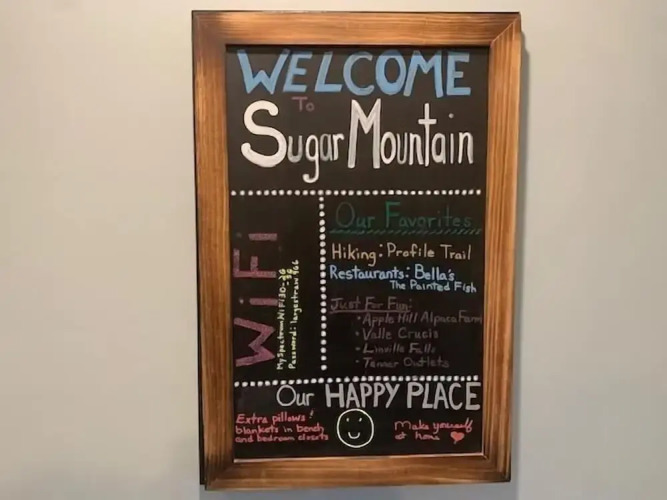 WELCOME
To
Sugar Mountain
WiFi
MySpectrumWiFi30-2G
5G
Password: largestraw966
Our Favorites
Hiking: Profile Trail
Restaurants: Bella's
The Painted Fish
Just For Fun:
• Apple Hill Alpaca Farm
• Valle Crucis
• Linville Falls
• Tanner Outlets
Our HAPPY PLACE
Extra pillows!
blankets in bench
and bedroom closets
Make yourself
at home